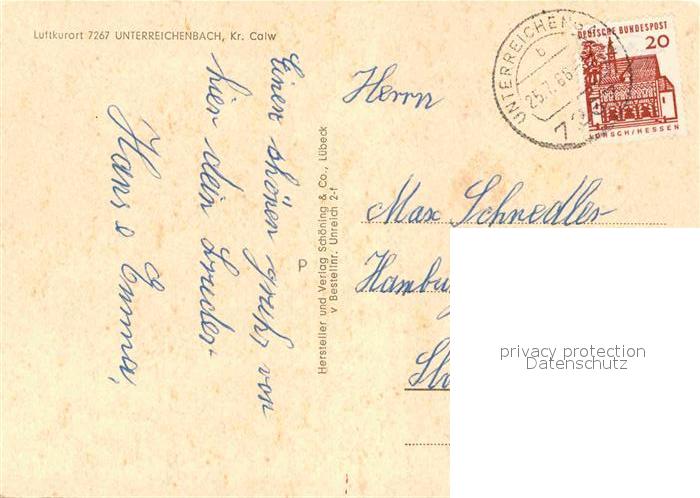 Luftkurort 7267 UNTERREICHENBACH, Kr. Calw
Einen schönen gruß von
hier dein Bruder
Hans & Emma,
Hersteller und Verlag Schöning & Co., Lübeck
V Bestellnr. Unreich 2-f
P
UNTERREICHENBA
b
25.7.66
72
DEUTSCHE BUNDESPOST
20
LORSCH/HESSEN
Herrn
Max Schnedler
Hambu
privacy protection
Datenschutz